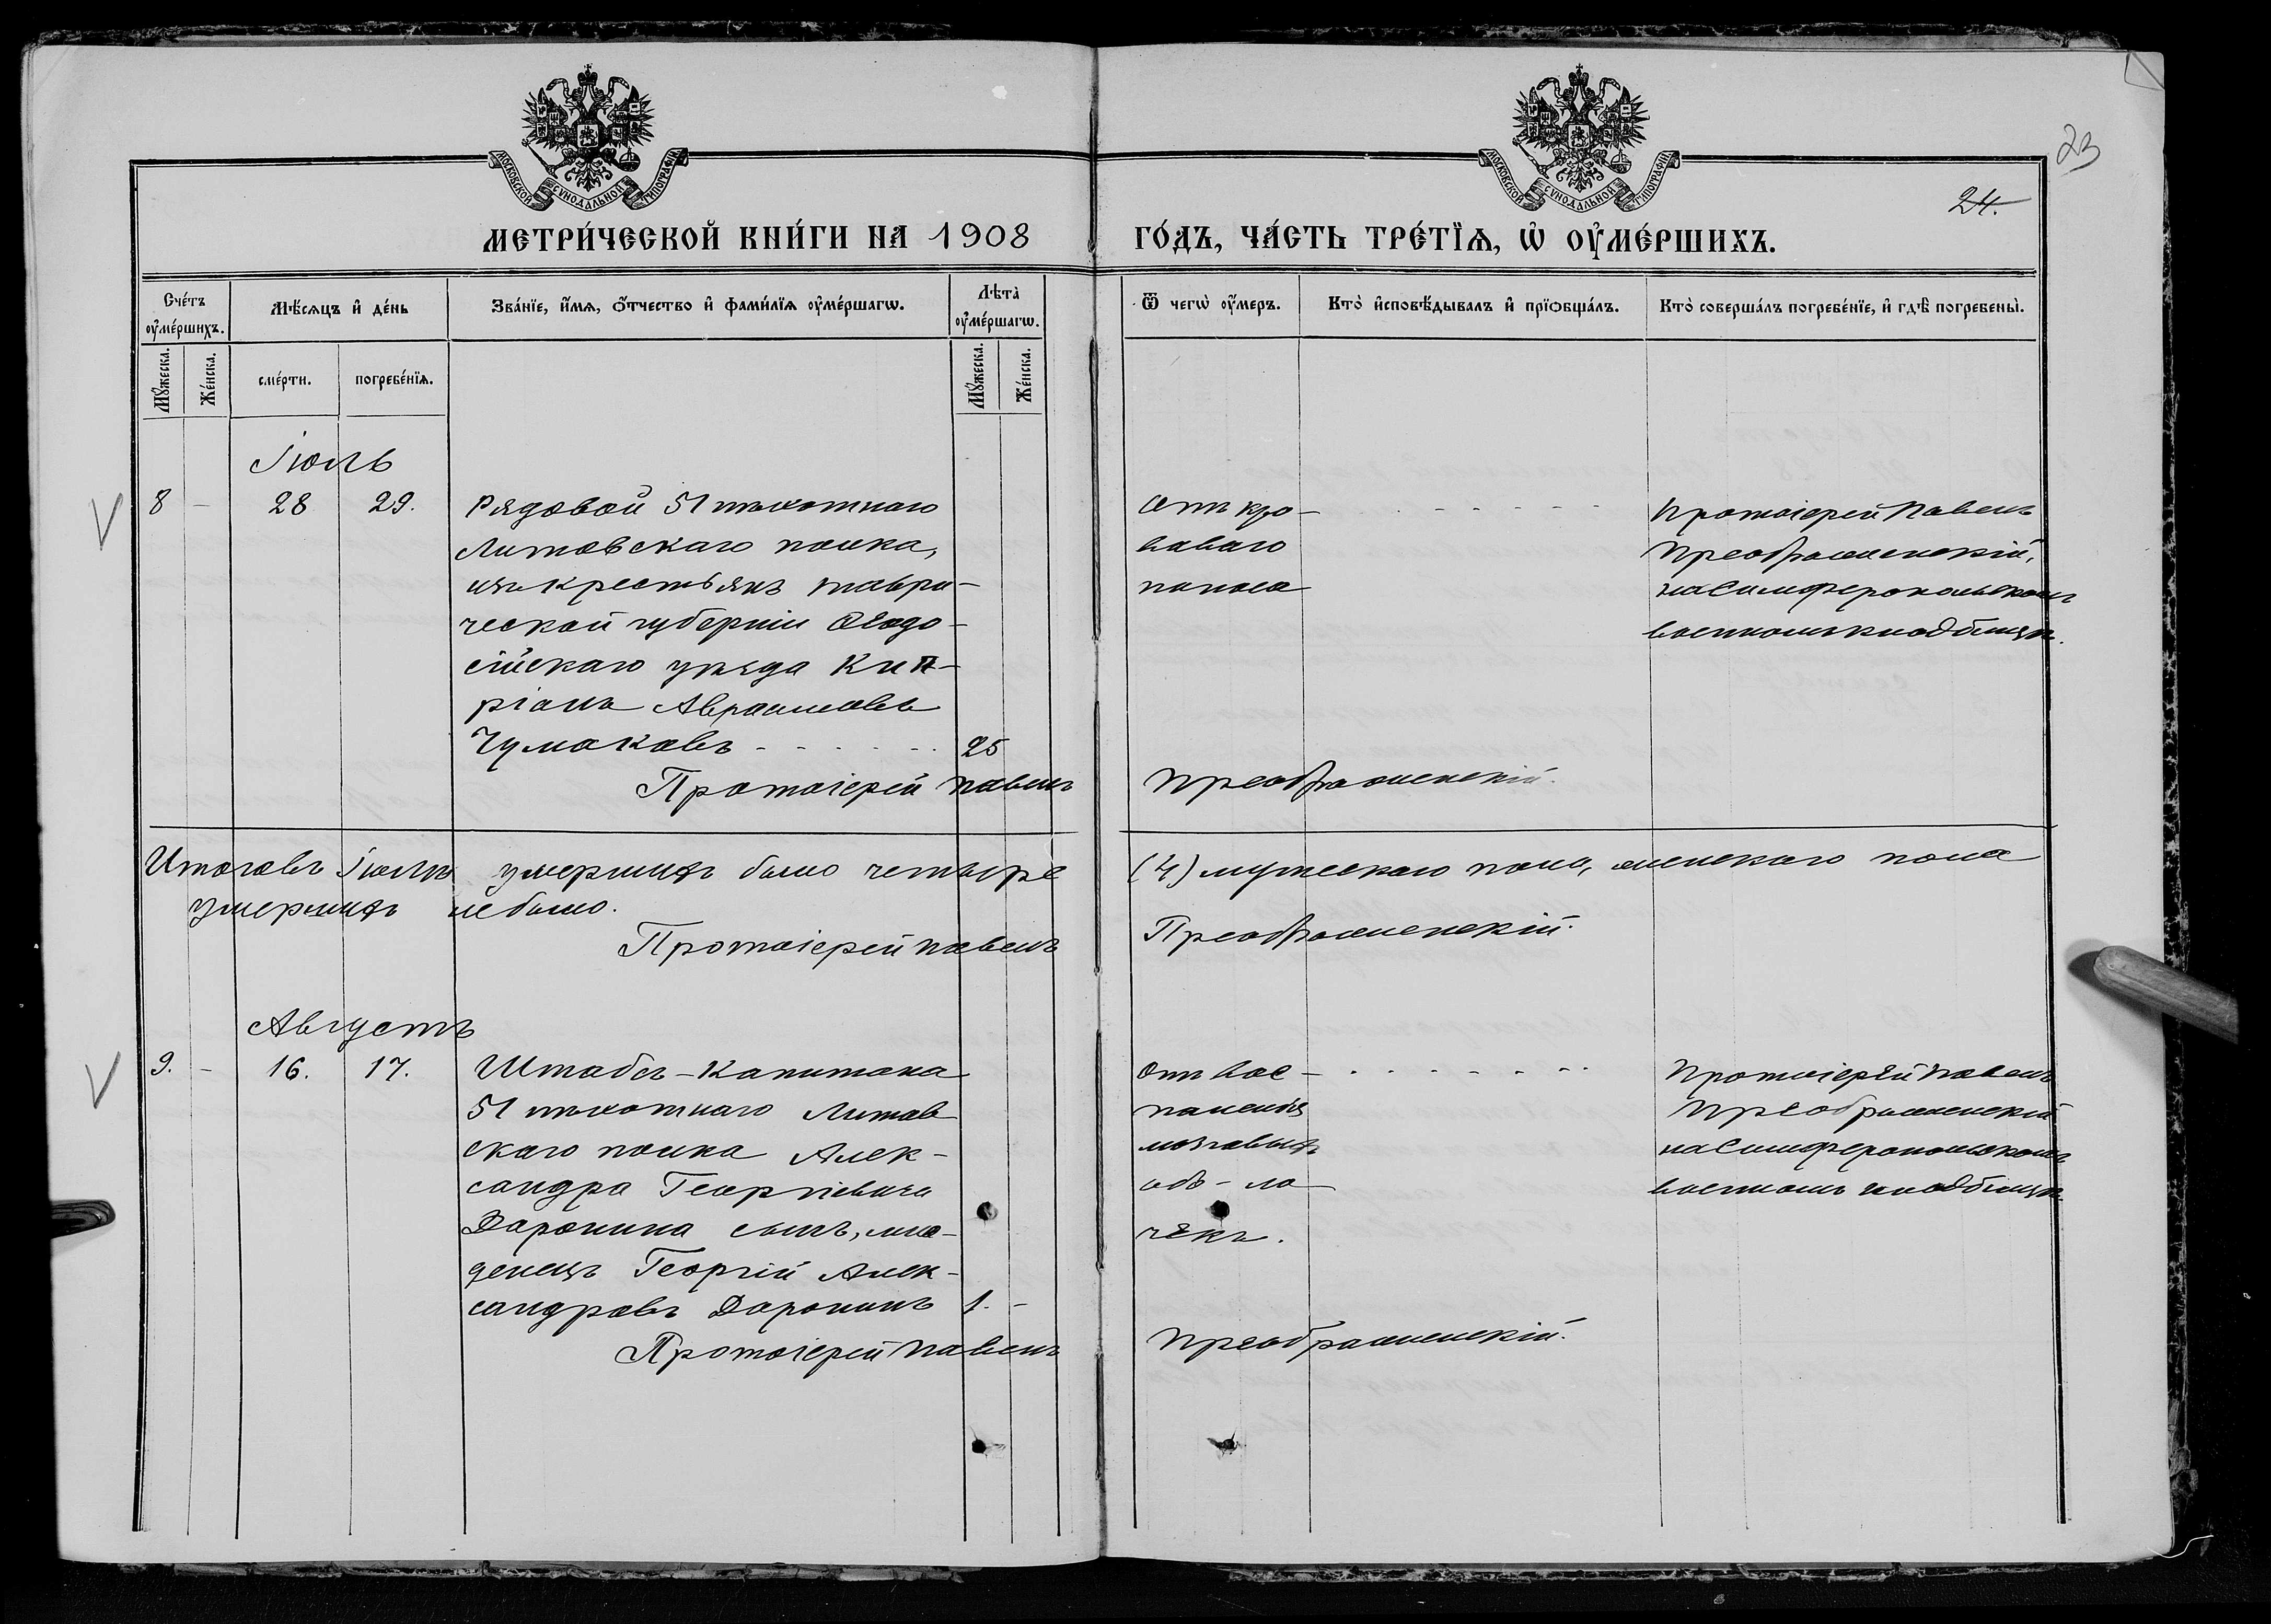 МОСКОВСКОЙ СѴНОДАЛЬНОЙ ТИПОГРАФІИ
МОСКОВСКОЙ СѴНОДАЛЬНОЙ ТИПОГРАФІИ
23
24.
МЕТРИ́ЧЕСКОЙ КНИ́ГИ НА 1908 ГО́ДЪ, ЧА́СТЬ ТРЕ́ТЇѦ, Ѡ҆ ОУ҆МЕ́РШИХЪ.
Сче́тъ оу҆ме́ршихъ.
Мѣ́сѧцъ и҆ де́нь
Зва́нїе, и҆́мѧ, ѻ҆́тчество и҆ фами́лїѧ оу҆ме́ршагѡ.
Лѣта̀ оу҆ме́ршагѡ.
Ѿ чегѡ̀ оу҆́меръ.
Кто̀ и҆сповѣ́дывалъ и҆ прїѻбща́лъ.
Кто̀ соверша́лъ погребе́нїе, и҆ гдѣ̀ погребены̀.
Мꙋ́жеска.
Же́нска.
сме́рти.
погребе́нїѧ.
Мꙋ́жеска.
Же́нска.
Іюль
8 - 28 29. Рядовой 51 пѣхотнаго
Литовскаго полка,
изъ крестьянъ Таври-
ческой губерніи Ѳеодо-
сійскаго уѣзда Кип-
ріанъ Авраамовъ
Чумаковъ - - - - - - 25
Отъ кро-
ваваго
поноса
Протоіерей Павелъ
Преображенскій,
на Симферопольскомъ
военномъ кладбищѣ.
Протоіерей Павелъ Преображенскій.
Итого въ Іюлѣ умершихъ было четыре (4) мужескаго пола, женскаго пола
умершихъ не было.
Протоіерей Павелъ Преображенскій.
Августъ
9. - 16. 17. Штабсъ-Капитана
51 пѣхотнаго Литов
скаго полка Алек-
сандра Георгіевича
Доронина сынъ, мла-
денецъ Георгій Алек-
сандровъ Доронинъ 1. -
Отъ вос-
паленія
мозговыхъ
обо-ло
чекъ.
Протоіерей Павелъ
Преображенскій
на Симферопольскомъ
военномъ кладбищѣ.
Протоіерей Павелъ Преображенскій.